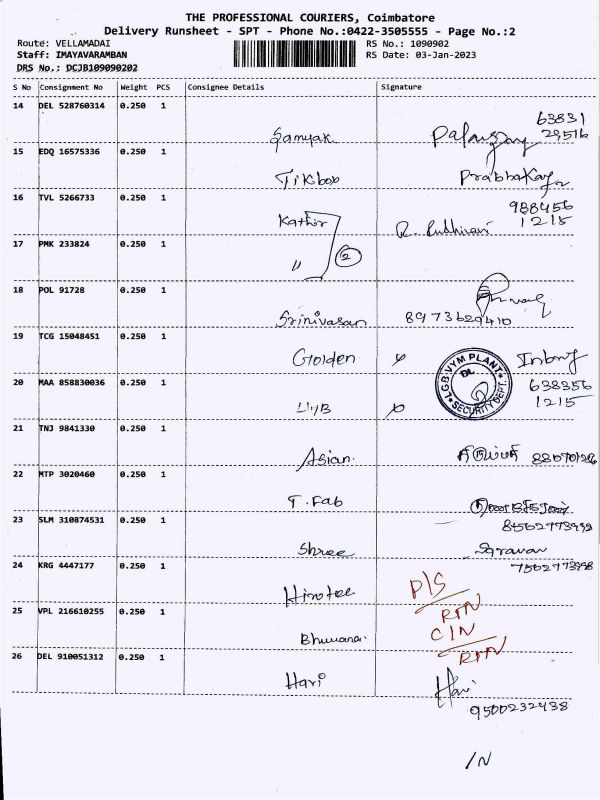 THE PROFESSIONAL COURIERS, Coimbatore
Delivery Runsheet - SPT - Phone No.:0422-3505555 - Page No.:2
Route: VELLAMADAI RS No.: 1090902
Staff: IMAYAVARAMBAN RS Date: 03-Jan-2023
DRS No.: DCJB109090202
S No Consignment No Weight PCS Consignee Details Signature
14 DEL 528760314 0.250 1
63831
Samyak 29516
15 EDQ 16575336 0.250 1
Prabhakar
16 TVL 5266733 0.250 1
988456
Kathir 1215
17 PMK 233824 0.250 1
" 2
18 POL 91728 0.250 1
Srinivasan 8973629410
19 TCG 15048451 0.250 1
Golden
LGB VYM PLANT
SECURITY DEPT.
20 MAA 858830036 0.250 1
638356
1215
21 TNJ 9841330 0.250 1
Asian.
22 MTP 3020460 0.250 1
T. Fab
23 SLM 310874531 0.250 1
Shree Sravan
24 KRG 4447177 0.250 1
P/S
RTN
25 VPL 216610255 0.250 1
C/N
RTN
26 DEL 910051312 0.250 1
Hari Hari
9500232438
/N